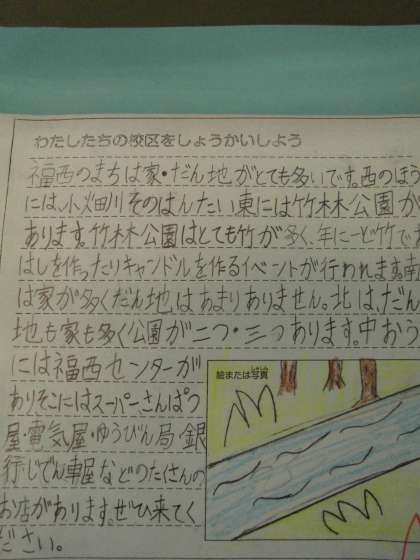 わたしたちの校区をしょうかいしよう
福西のまちは家・だん地がとても多いです。西のほう
には、小畑川そのはんたい東には竹林公園が
あります。竹林公園はとても竹が多く、年に一ど竹で
はしを作ったりキャンドルを作るイベントが行われます。南
は家が多くだん地はあまりありません。北は、だん
地も家も多く公園が二つ・三つあります。中おう
には福西センターが
ありそこにはスーパーさんぱつ
屋・電気屋・ゆうびん局・銀
行・じでん車屋などのたくさんの
お店があります。ぜひ来てく
ださい。
絵または写真